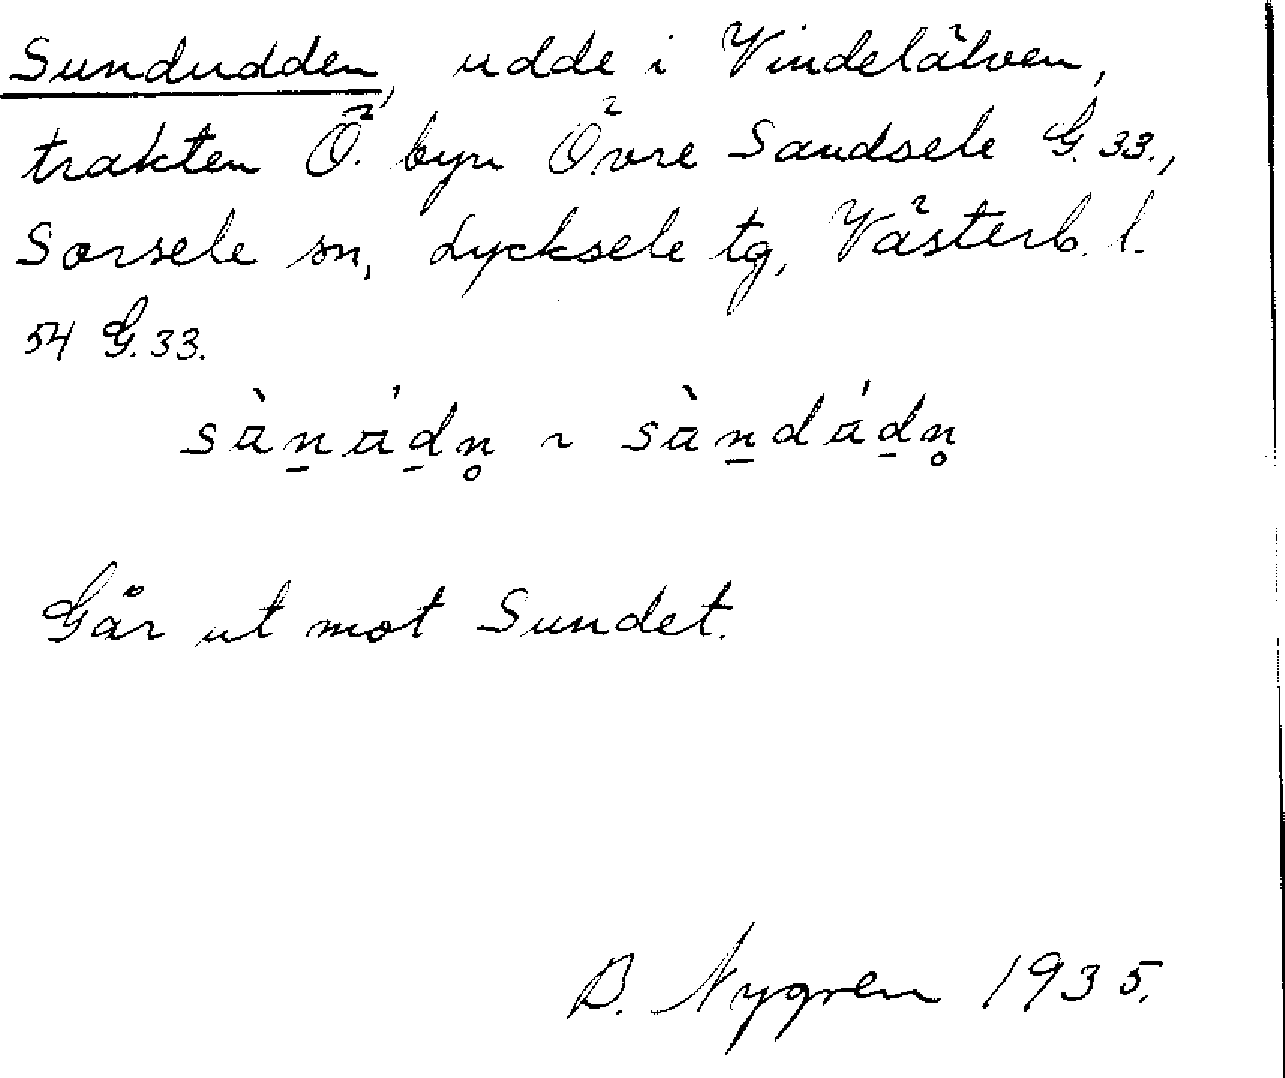 Sundudden, udde i Vindelälven,
trakten Ö. byn Övre Sandsele G. 33.,
Sorsele sn, Lycksele tg, Västerb. l.
54 G. 33.
sàn̠ád̠n̥ ~ sàn̠dád̠n̥
Går ut mot Sundet.
B. Nygren 1935.